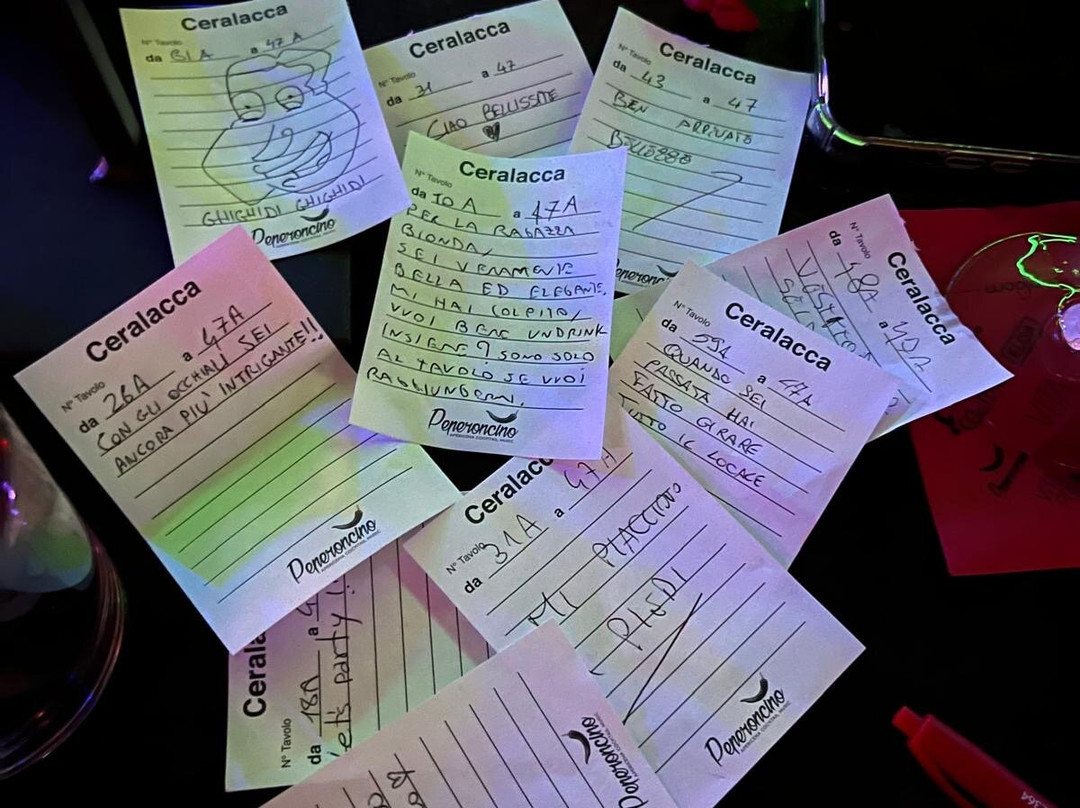 Ceralacca
N° Tavolo
da 31A a 47A
GHIGHIDI GHIGHIDI
Peperoncino
Ceralacca
N° Tavolo
da 31 a 47
CIAO BELLISSME
Ceralacca
N° Tavolo
da 43 a 47
BEN ARRIVATO
Peperonc
Ceralacca
N° Tavolo
da IOA a 47A
PER LA RAGAZZA
BIONDA,
SEI VERAMENTE
BELLA ED ELEGANTE,
MI HAI COLPITO,
VUOI BERE UN DRINK
INSIEME? SONO SOLO
AL TAVOLO SE VUOI
RAGGIUNGERMI.
Peperoncino
APERICENA COCKTAIL MUSIC
Ceralacca
N° Tavolo
da 48A a
Ceralacca
N° Tavolo
da 26A a 47A
CON GLI OCCHIALI SEI
ANCORA PIU' INTRIGANTE!!
Peperoncino
APERICENA COCKTAIL MUSIC
Ceralacca
N° Tavolo
da 59A a 47A
QUANDO SEI
PASSATA HAI
FATTO GIRARE
TUTTO IL LOCALE
Ceralacc
N° Tavolo
da 31A a 47A
MI PIACCIONO
PIEDI
Peperoncino
APERICENA COCKTAIL MUSIC
Cerala
N° Tavolo
da 18A a 4
let's party!
Peperoncino
APERICENA COCKTAIL MUSIC